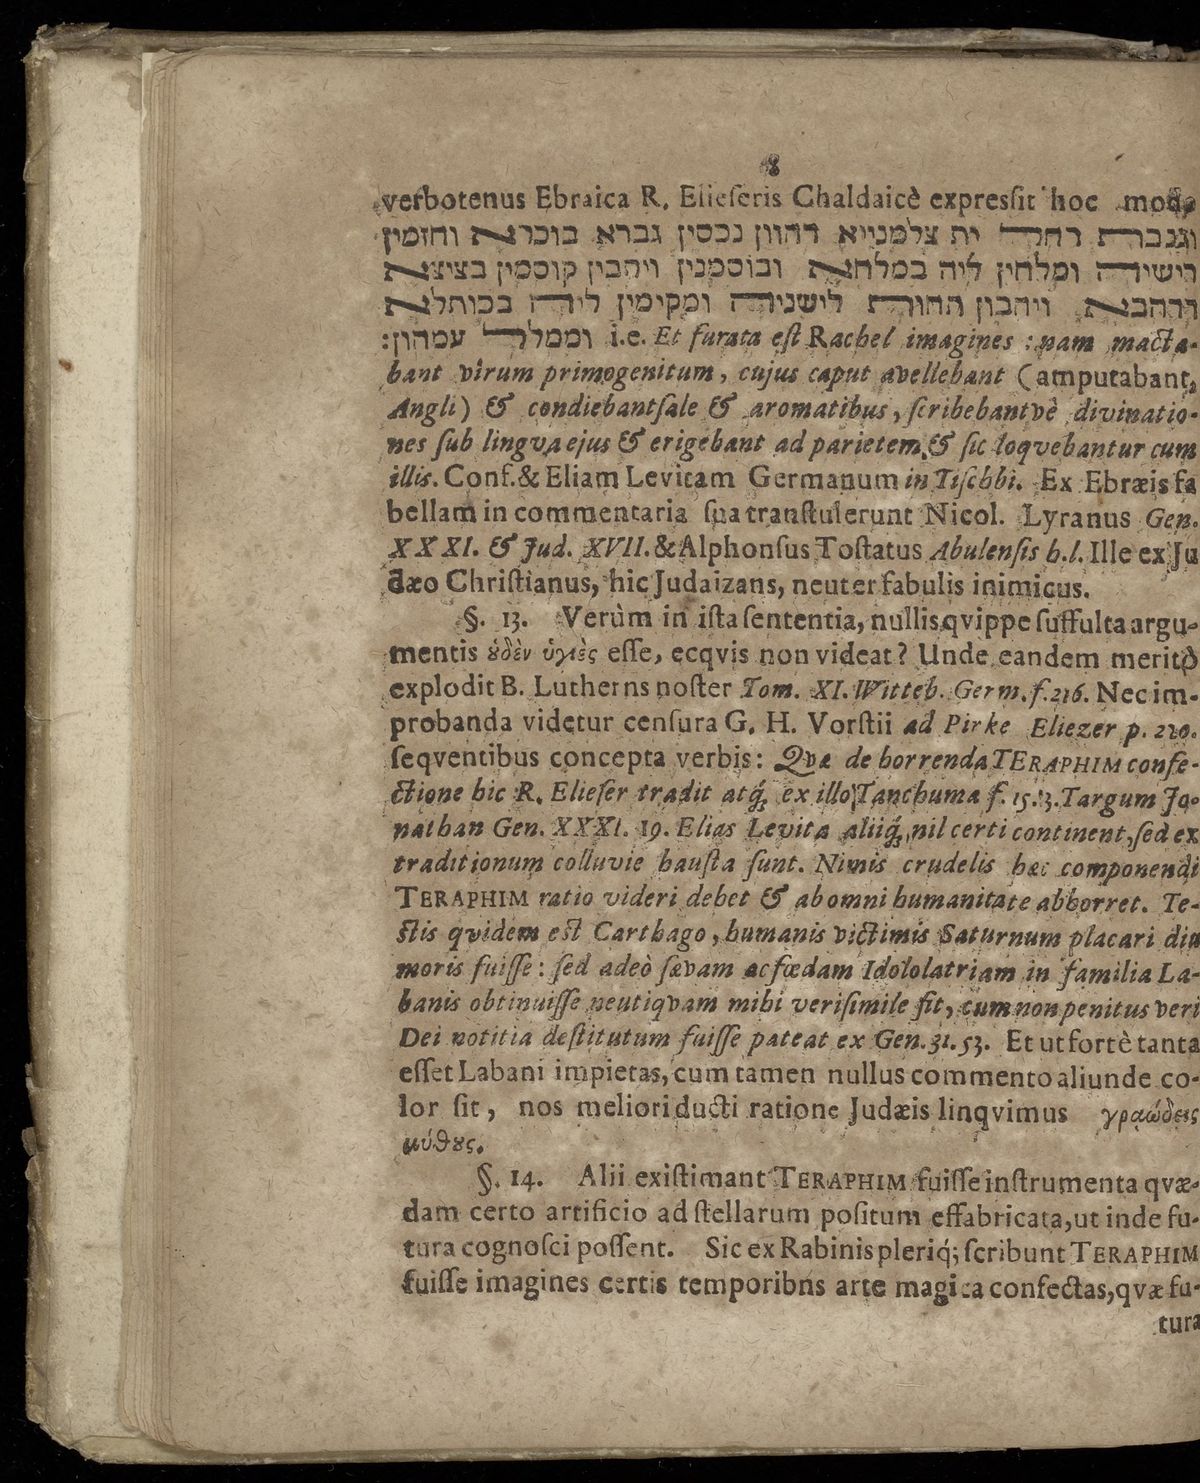 8
verbotenus Ebraica R. Elieſeris Chaldaicè expresſit hoc modo
וגנברת רחל ית צלמנייא דהוון נכסין גברא בוכרא וחזמין
רישיה ומלחין ליה במלחא ובוסמנין ויהבין קוסמין בציצא
דדהבא ויהבון תחות לישניה ומקימין ליה בכותלא
וממלל עמהון: i.e. Et furata eſt Rachel imagines : nam macta-
bant virum primogenitum, cujus caput avellebant (amputabant,
Angli) & condiebantſale & aromatibus, ſcribebantvè divinatio-
nes ſub lingva ejus & erigebant ad parietem, & ſic loqvebantur cum
illis. Conf. & Eliam Levitam Germanum in Tiſchbi. Ex Ebræis fa
bellam in commentaria ſua tranſtulerunt Nicol. Lyranus Gen.
XXXI. & Jud. XVII. & Alphonſus Toſtatus Abulenſis h.l. Ille ex Ju
dæo Chriſtianus, hic Judaizans, neuter fabulis inimicus.
§. 13. Verùm in iſta ſententia, nullis qvippe ſuffulta argu-
mentis ȣ̓δὲν ὑγιὲς eſſe, ecqvis non videat? Unde eandem meritò
explodit B. Lutherns noſter Tom. XI. Witteb. Germ. f. 216. Nec im-
probanda videtur cenſura G. H. Vorſtii ad Pirke Eliezer p. 210.
ſeqventibus concepta verbis: Qvæ de horrenda TERAPHIM confe-
ctione hic R. Elieſer tradit atq́; ex illo Tanchuma f. 15. 3. Targum Jo-
nathan Gen. XXXI. 19. Elias Levita aliiq́; nil certi continent, ſed ex
traditionum colluvie hauſta ſunt. Nimis crudelis hæc componendi
TERAPHIM ratio videri debet & ab omni humanitate abhorret. Te-
ſtis qvidem eſt Carthago, humanis victimis Saturnum placari diu
moris fuiſſe : ſed adeò ſævam ac fœdam Idololatriam in familia La-
banis obtinuiſſe neutiqvam mihi veriſimile fit, cum non penitus veri
Dei notitia deſtitutum fuiſſe pateat ex Gen. 31. 53. Et ut fortè tanta
eſſet Labani impietas, cum tamen nullus commento aliunde co-
lor ſit, nos meliori ducti ratione Judæis linqvimus γραώδεις
μύθȣς.
§. 14. Alii exiſtimant TERAPHIM fuiſſe inſtrumenta qvæ-
dam certo artificio ad ſtellarum poſitum effabricata, ut inde fu-
tura cognoſci poſſent. Sic ex Rabinis pleriq́; ſcribunt TERAPHIM
fuiſſe imagines certis temporibns arte magica confectas, qvæ fu-
tura